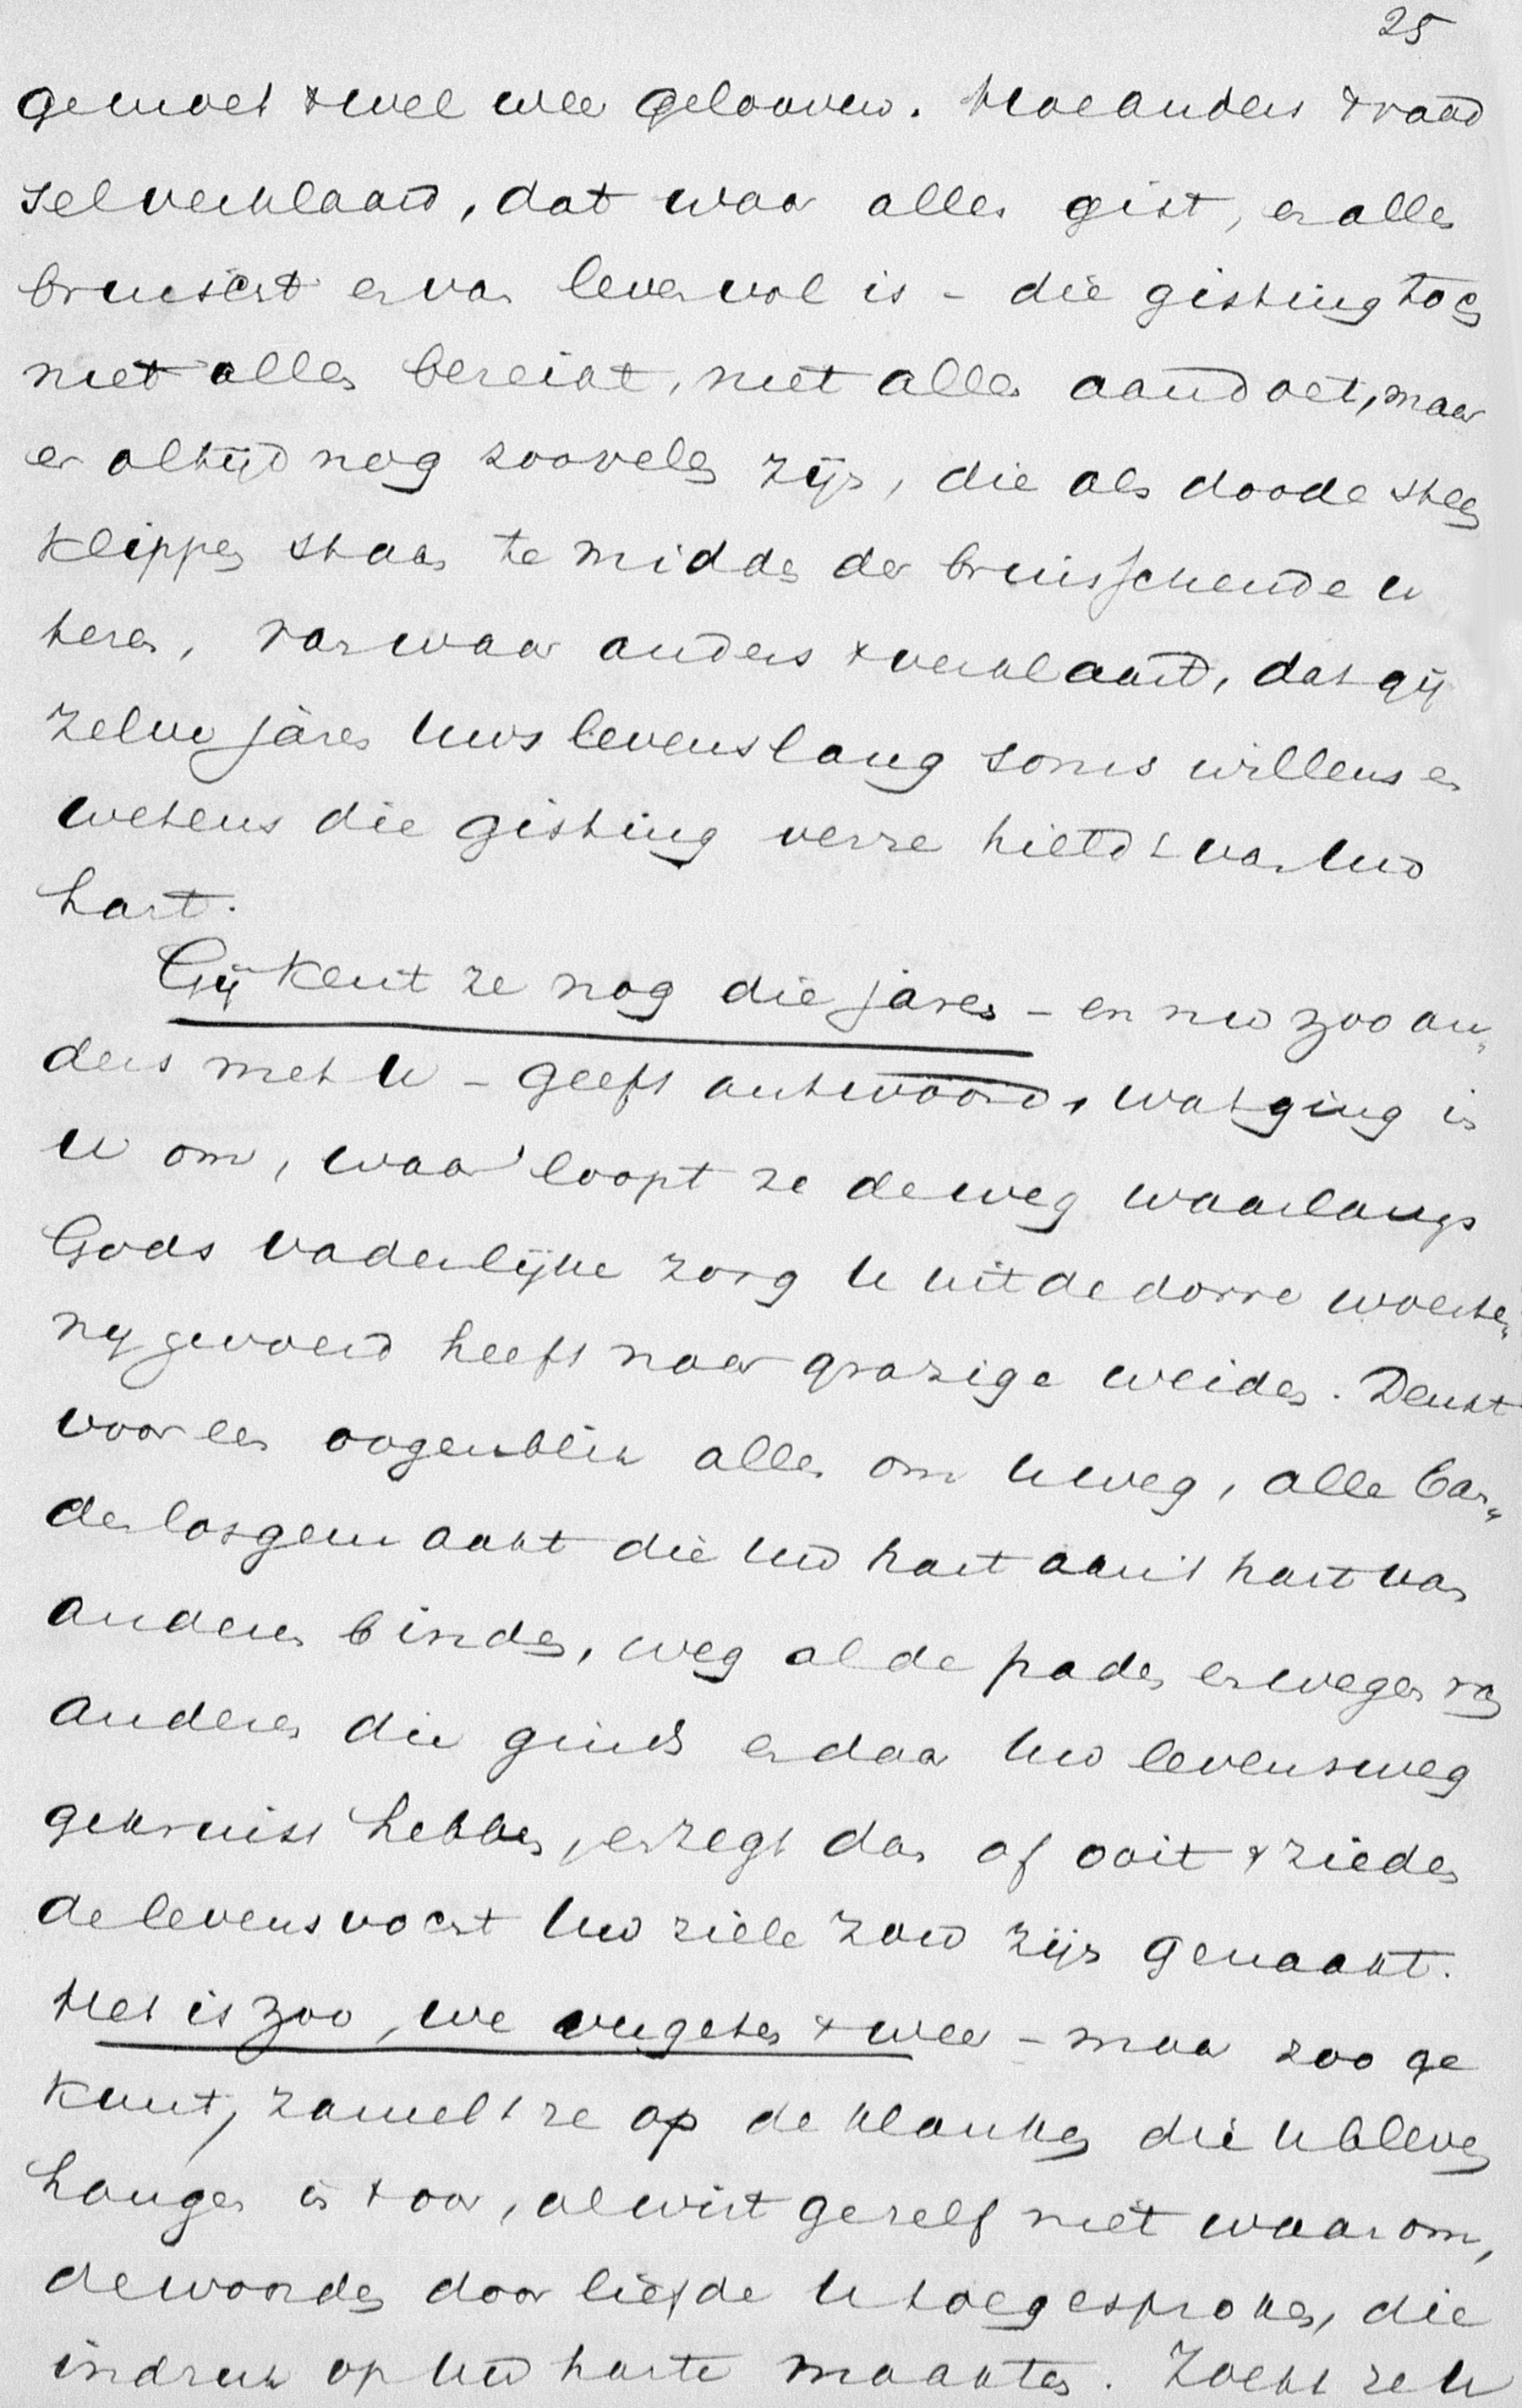 25
gemoet & wel wee gelooven. Hoe anders & raad
sel verklaard, dat waar alles gist, en alles
bruischt en van leven vol is - die gisting toch
niet allen bereikt, niet allen aandoet, maar
er altijd nog zoovelen zijn, die als doode steen
klippen staan te midden der bruisschende w
teren, van waar anders & verklaard, dat gij
zelve jaren Uws levens lang soms willens en
wetens die gisting verre hieldt van Uw
hart.
Gij kent ze nog die jaren - en nu zoo an„
ders met U - geeft antwoord, wat ging in
U om, waar loopt ze de weg waarlangs
Gods vaderlijke zorg U uit de dorre woeste„
ny gevoerd heeft naar grazige weiden. Denkt
voor een oogenblik allen om U weg, alle ban„
den losgemaakt die Uw hart aan 't hart van
anderen binden, weg al de paden en wegen van
anderen die ginds en daar Uw levensweg
gekruist hebben, en zegt dan of ooit & zieden
de levensvocht Uw ziele zou zijn genaakt.
Het is zoo, we vergeten & weer - maar zoo ge
kunt, zamelt ze op de klanken die U bleven
hangen in & oor, al wist ge zelf niet waarom,
de woorden door liefde U toegesproken, die
indruk op Uw harte maakten. Zoekt ze U